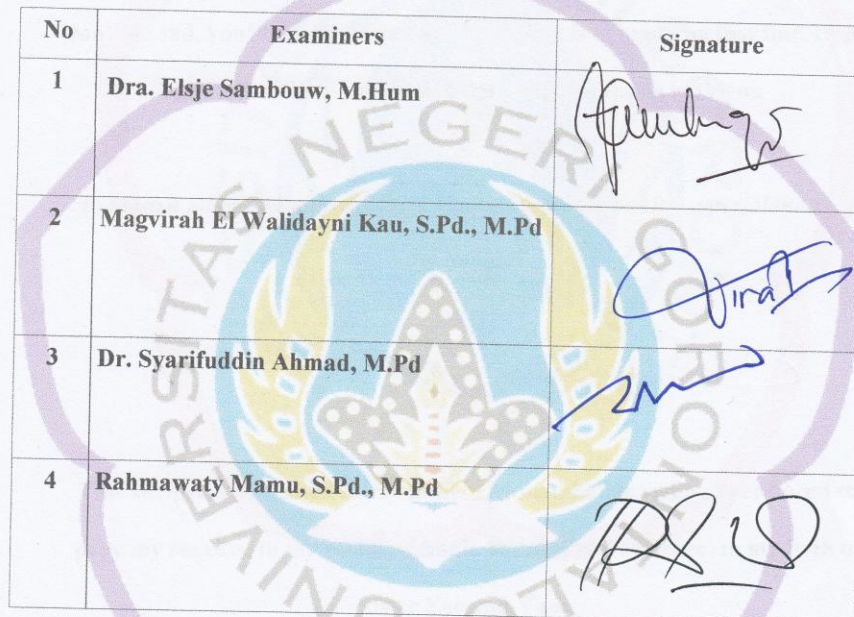 No Examiners Signature
1 Dra. Elsje Sambouw, M.Hum
2 Magvirah El Walidayni Kau, S.Pd., M.Pd
3 Dr. Syarifuddin Ahmad, M.Pd
4 Rahmawaty Mamu, S.Pd., M.Pd
UNIVERSITAS NEGERI GORONTALO